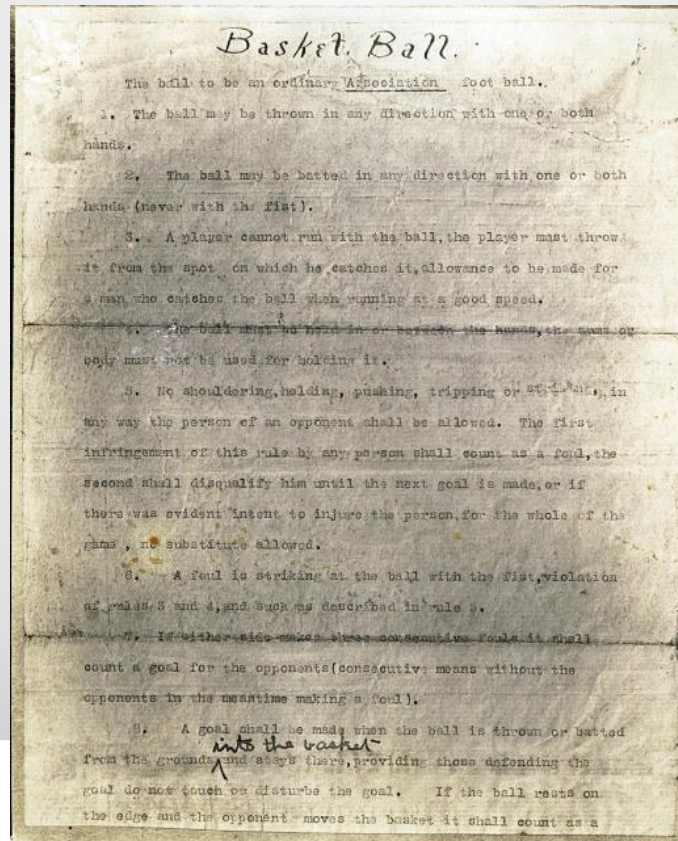 Basket Ball.
The ball to be an ordinary Association foot ball.
1. The ball may be thrown in any direction with one or both
hands.
2. The ball may be batted in any direction with one or both
hands (never with the fist).
3. A player cannot run with the ball, the player must throw
it from the spot on which he catches it, allowance to be made for
a man who catches the ball when running at a good speed.
4. The ball must be held in or between the hands, the arms or
body must not be used for holding it.
5. No shouldering, holding, pushing, tripping or striking, in
any way the person of an opponent shall be allowed. The first
infringement of this rule by any person shall count as a foul, the
second shall disqualify him until the next goal is made, or if
there was evident intent to injure the person, for the whole of the
game, no substitute allowed.
6. A foul is striking at the ball with the fist, violation
of rules 3 and 4, and such as described in rule 5.
7. If either side makes three consecutive fouls it shall
count a goal for the opponents (consecutive means without the
opponents in the meantime making a foul).
8. A goal shall be made when the ball is thrown or batted
from the grounds into the basket and stays there, providing those defending the
goal do not touch or disturbe the goal. If the ball rests on
the edge and the opponent moves the basket it shall count as a